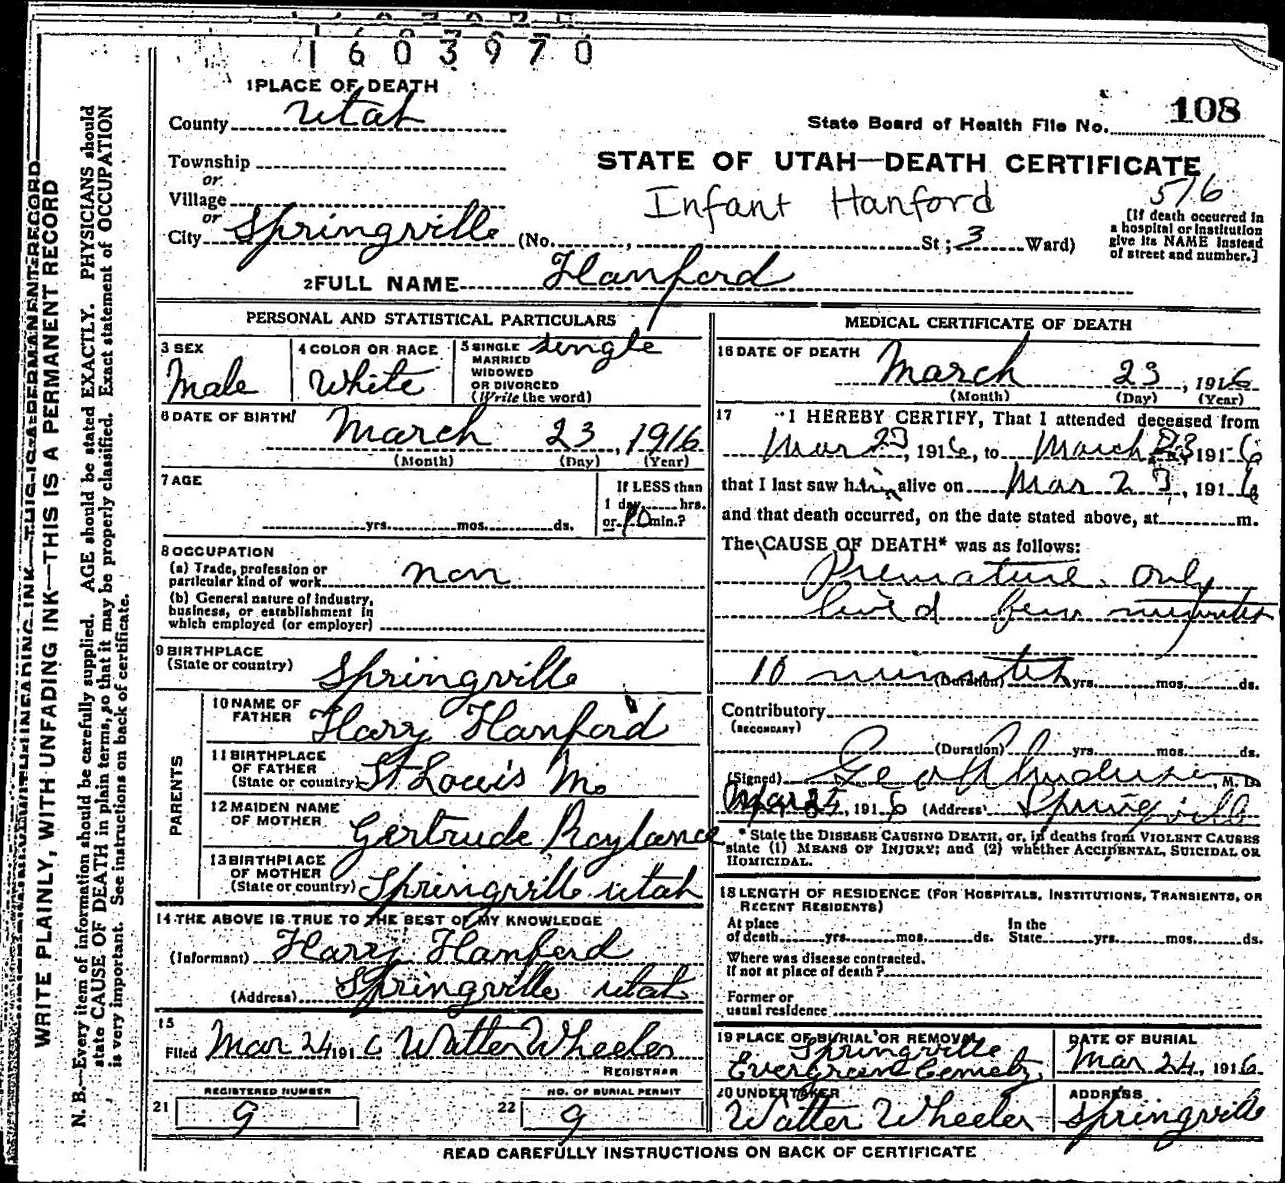 1603970
1 PLACE OF DEATH
County Utah
State Board of Health File No. 108
Township
or
Village
or
City Springville (No. , St; 3 Ward)
STATE OF UTAH—DEATH CERTIFICATE
Infant Hanford
516
[If death occurred in
a hospital or institution
give its NAME instead
of street and number.]
2 FULL NAME Hanford
PERSONAL AND STATISTICAL PARTICULARS
3 SEX
Male
4 COLOR OR RACE
White
5 SINGLE single
MARRIED
WIDOWED
OR DIVORCED
(Write the word)
6 DATE OF BIRTH
March 23, 1916
(Month) (Day) (Year)
7 AGE
yrs. mos. ds.
If LESS than
1 day hrs.
or 10 min.?
8 OCCUPATION
(a) Trade, profession or
particular kind of work non
(b) General nature of industry,
business, or establishment in
which employed (or employer)
9 BIRTHPLACE
(State or country) Springville
PARENTS
10 NAME OF
FATHER Harry Hanford
11 BIRTHPLACE
OF FATHER
(State or country) St Louis Mo
12 MAIDEN NAME
OF MOTHER Gertrude Roylance
13 BIRTHPLACE
OF MOTHER
(State or country) Springville utah
14 THE ABOVE IS TRUE TO THE BEST OF MY KNOWLEDGE
(Informant) Harry Hanford
(Address) Springville utah
15
Filed Mar 24 1916 Walter Wheeler
REGISTRAR
REGISTERED NUMBER
21 9
NO. OF BURIAL PERMIT
22 9
MEDICAL CERTIFICATE OF DEATH
16 DATE OF DEATH
March 23, 1916
(Month) (Day) (Year)
17 I HEREBY CERTIFY, That I attended deceased from
Mar 23, 1916, to March 23 1916
that I last saw him alive on Mar 23, 1916
and that death occurred, on the date stated above, at m.
The CAUSE OF DEATH* was as follows:
Premature. only
lived few minutes
10 minutes (Duration) yrs. mos. ds.
Contributory
(SECONDARY)
(Duration) yrs. mos. ds.
(Signed) Geo , M. D.
Mar 25, 1916 (Address) Springville
* State the DISEASE CAUSING DEATH, or, in deaths from VIOLENT CAUSES
state (1) MEANS OF INJURY; and (2) whether ACCIDENTAL, SUICIDAL OR
HOMICIDAL.
18 LENGTH OF RESIDENCE (FOR HOSPITALS, INSTITUTIONS, TRANSIENTS, OR
RECENT RESIDENTS)
At place In the
of death yrs. mos. ds. State yrs. mos. ds.
Where was disease contracted.
if not at place of death?
Former or
usual residence
19 PLACE OF BURIAL OR REMOVAL
Springville
Evergreen Cemetry
DATE OF BURIAL
Mar 24, 1916
20 UNDERTAKER
Walter Wheeler
ADDRESS
Springville
READ CAREFULLY INSTRUCTIONS ON BACK OF CERTIFICATE
WRITE PLAINLY, WITH UNFADING INK—THIS IS A PERMANENT RECORD
N. B.—Every item of information should be carefully supplied. AGE should be stated EXACTLY. PHYSICIANS should
state CAUSE OF DEATH in plain terms, so that it may be properly classified. Exact statement of OCCUPATION
is very important. See instructions on back of certificate.